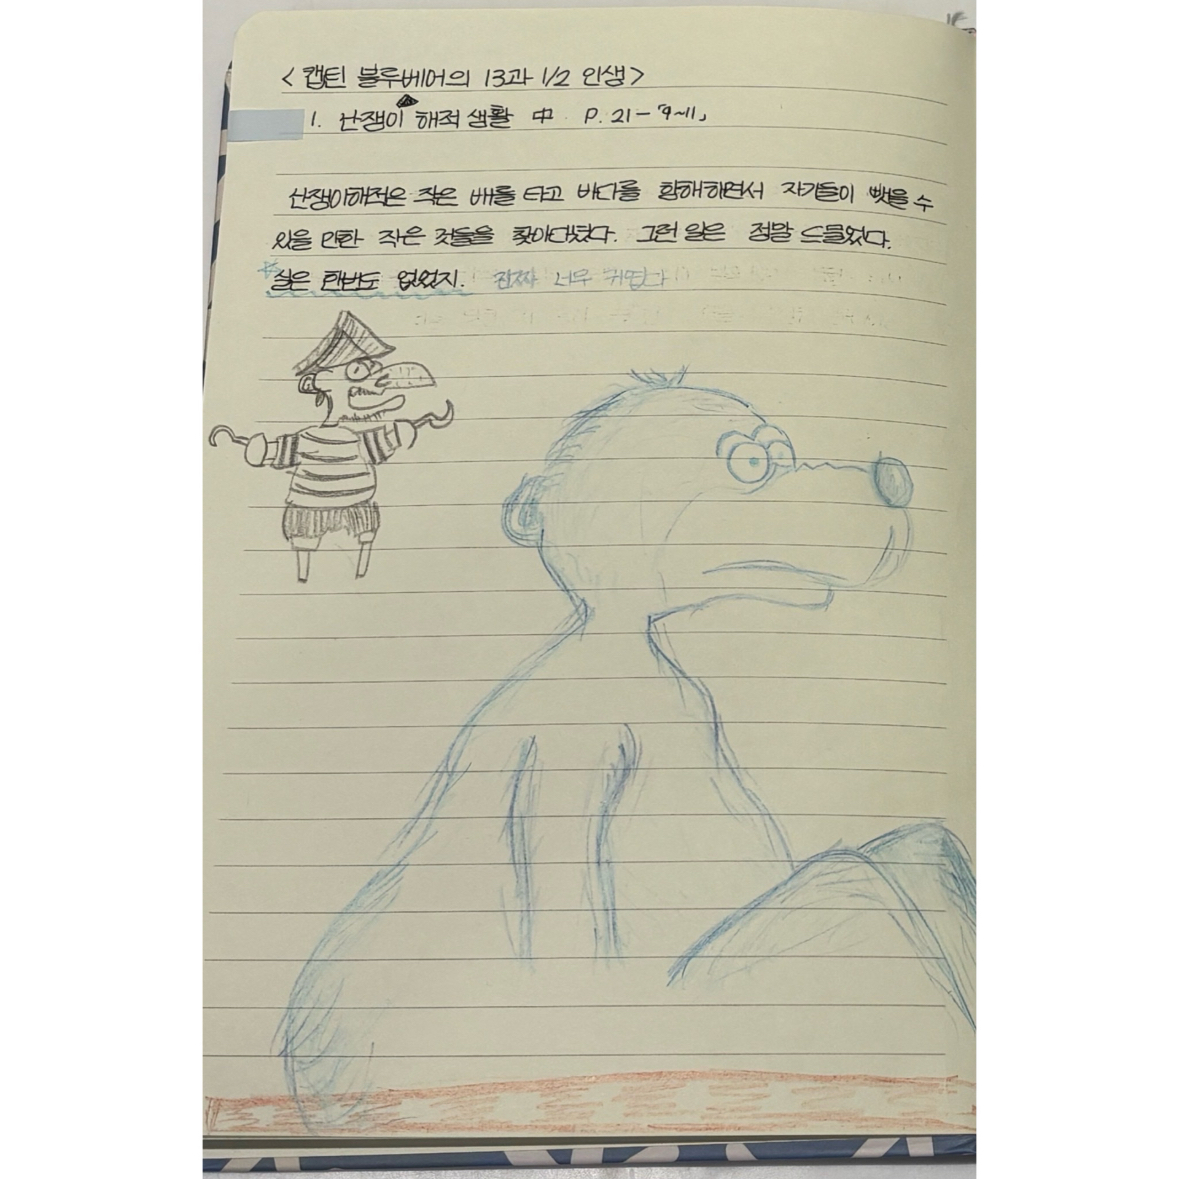 <캡틴 블루베어의 13과 1/2 인생>
1. 난쟁이 해적 생활 中 P. 21-「9~11」
난쟁이해적은 작은 배를 타고 바다를 항해하면서 자기들이 뺏을 수
있을 만한 작은 것들을 찾아다녔다. 그런 일은 정말 드물었다.
실은 한번도 없었지. 진짜 너무 귀엽다